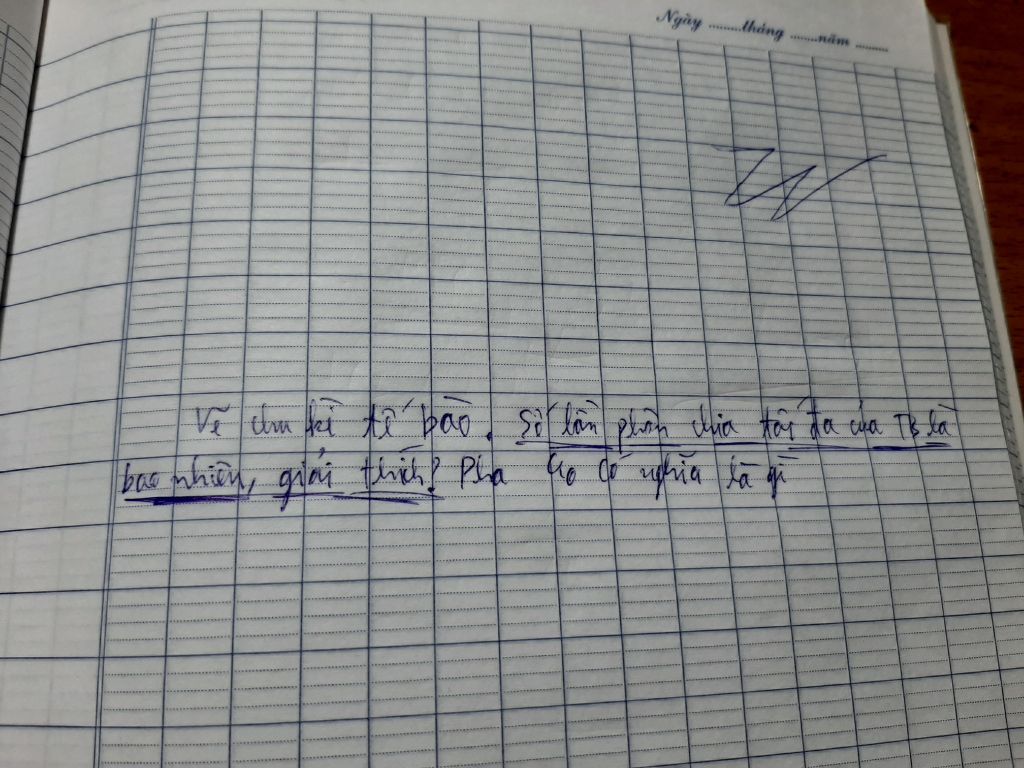 Ngày ........tháng .......năm ........
Vẽ chu kì tế bào. Số lần phân chia tối đa của TB là
bao nhiên, giải thích? Pha Go có nghĩa là gì